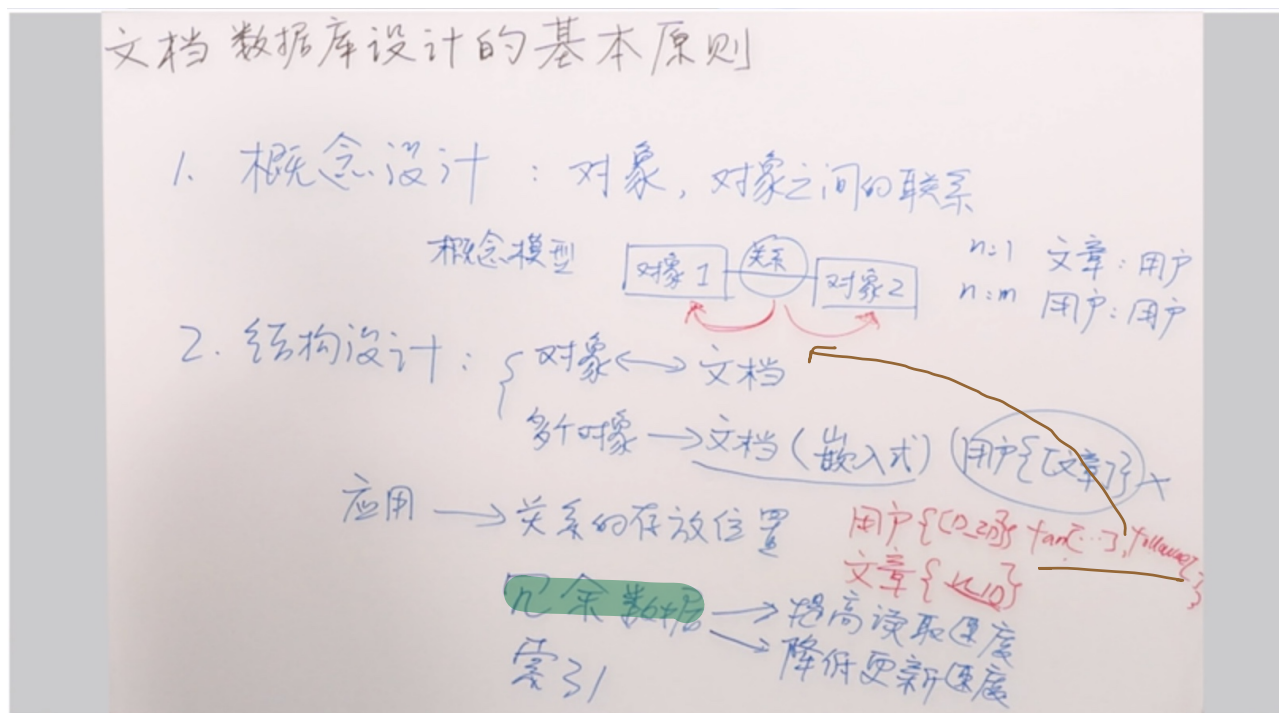 文档数据库设计的基本原则
1. 概念设计：对象，对象之间的联系
概念模型 对象1 关系 对象2 n:1 文章：用户
n:m 用户：用户
2. 结构设计：{ 对象 ⟷ 文档
多个对象 → 文档（嵌入式）（用户{[文章]}) ×
应用 → 关系的存放位置 用户{ fan[…],
文章{ }
冗余数据 → 提高读取速度
→ 降低更新速度
索引